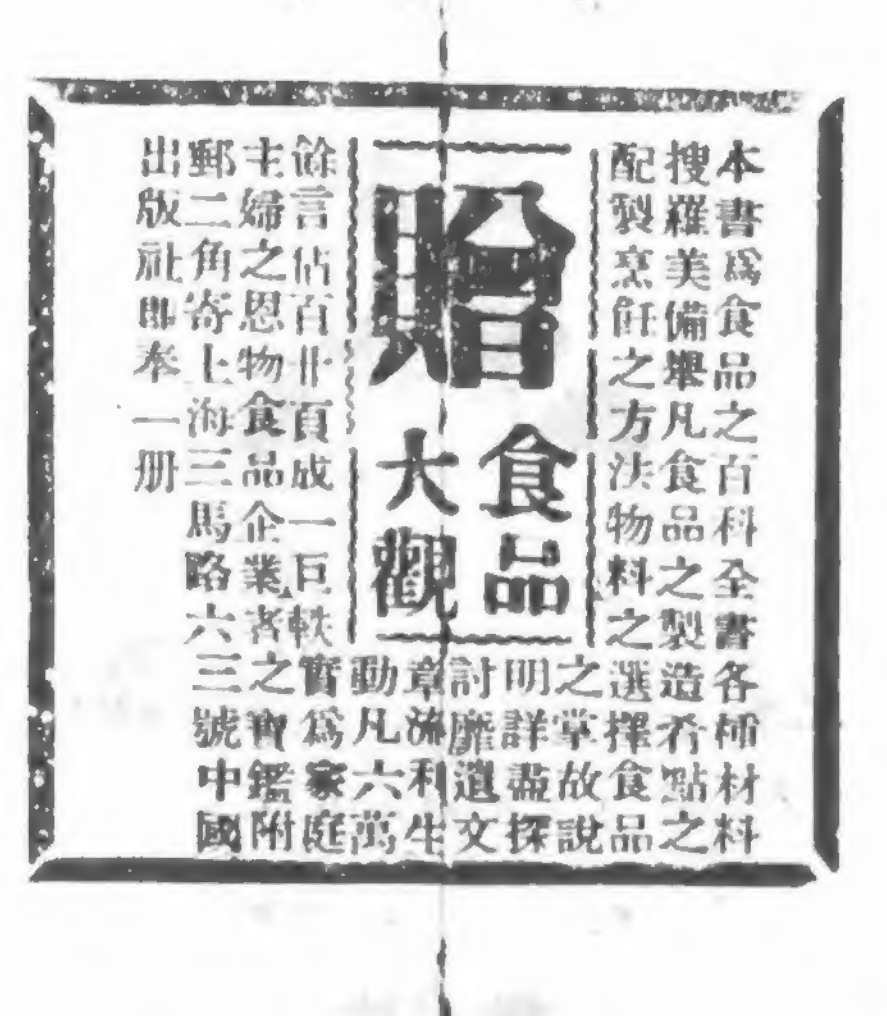 贈
食品
大觀
本書爲食品之百科全書各種材料
搜羅美備舉凡食品之製造肴點之
配製烹飪之方法物料之選擇食品
之掌故說
明詳盡探
討靡遺文
章流利生
動凡六萬
餘言佔百卅頁成一巨帙實爲家庭
主婦之恩物食品企業者之寶鑑附
郵二角寄上海三馬路六三號中國
出版社即奉一册